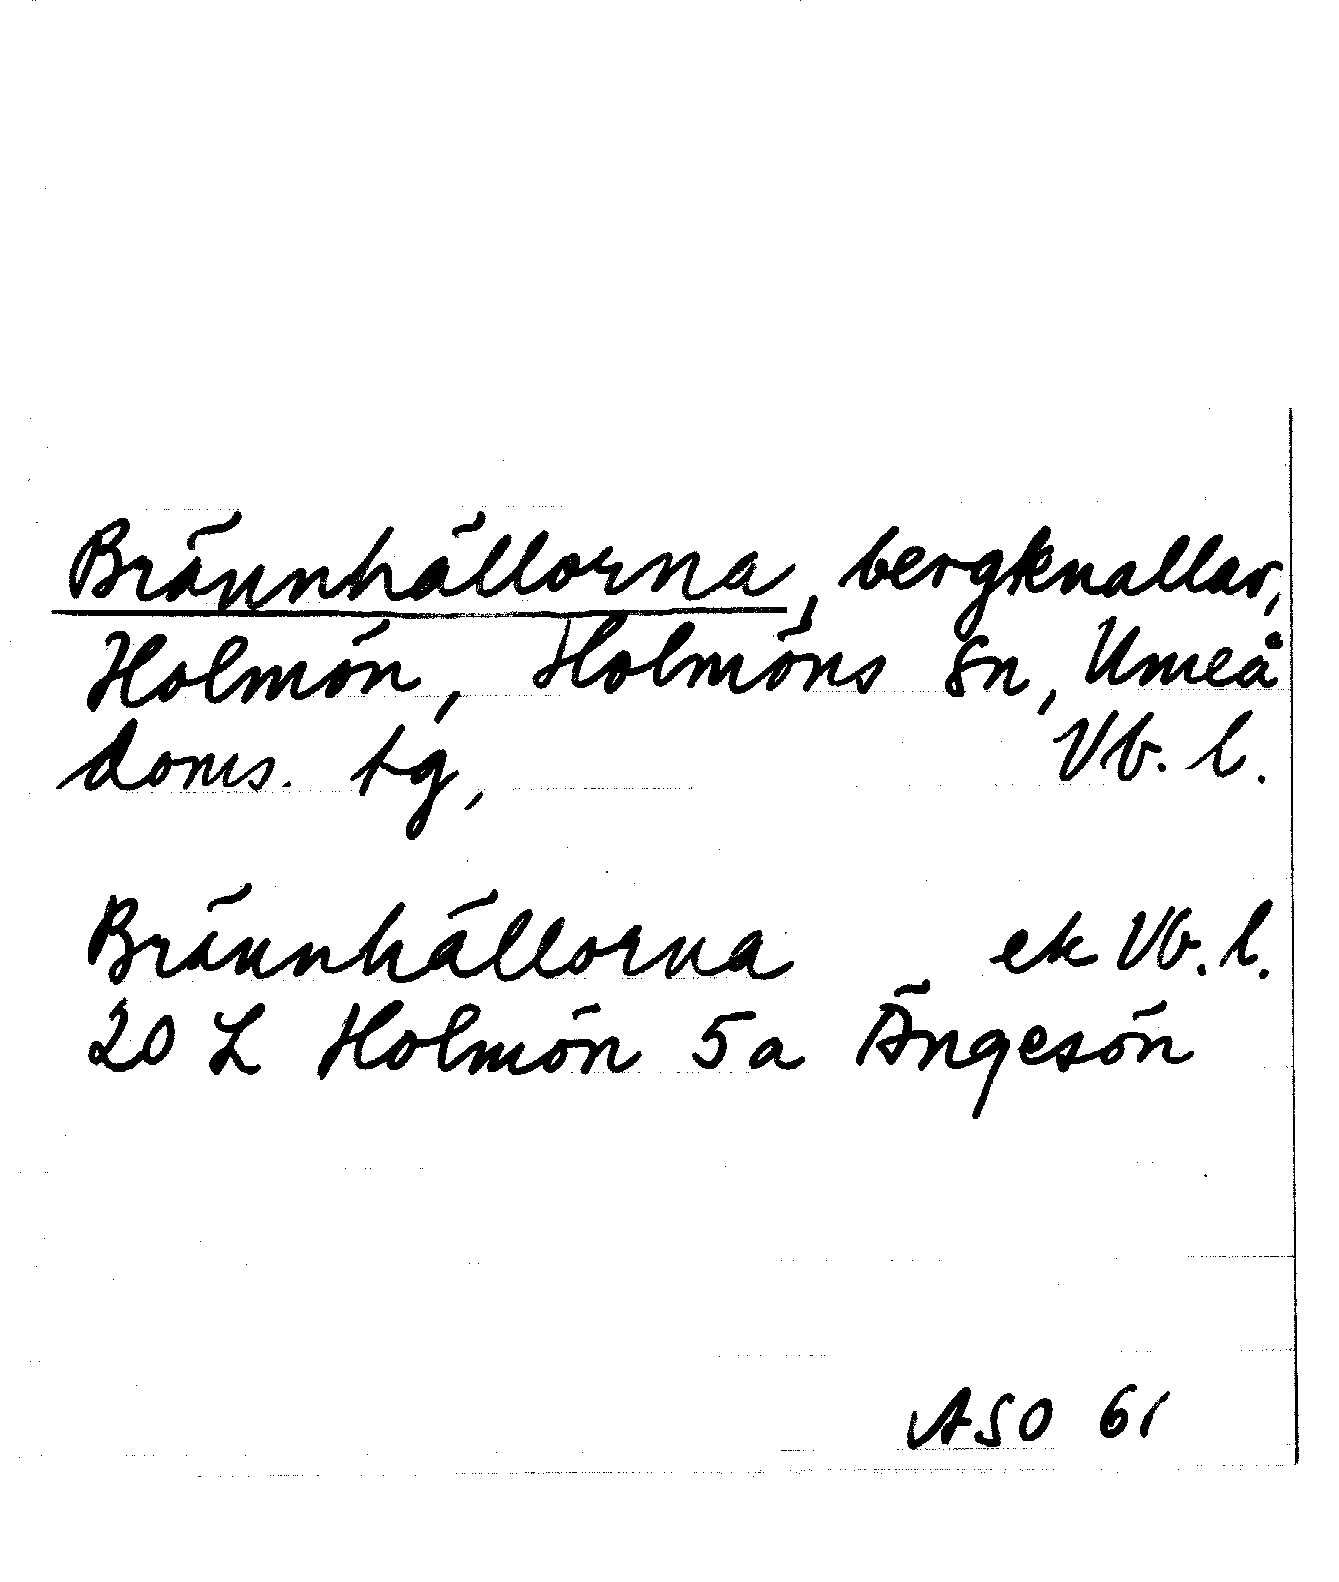 Brännhällorna, bergknallar,
Holmön, Holmöns sn, Umeå
doms. tg, Vb. l.
Brännhällorna ek Vb. l.
20 L Holmön 5a Ängesön
ASO 61